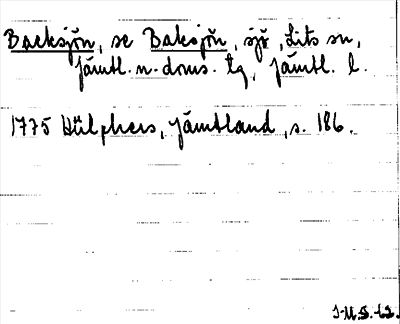 Backsjön, se Baksjön, sjö, Lits sn,
Jämtl. n. doms. tg, Jämtl. l.
1775 Hülphers, Jämtland, s. 186.